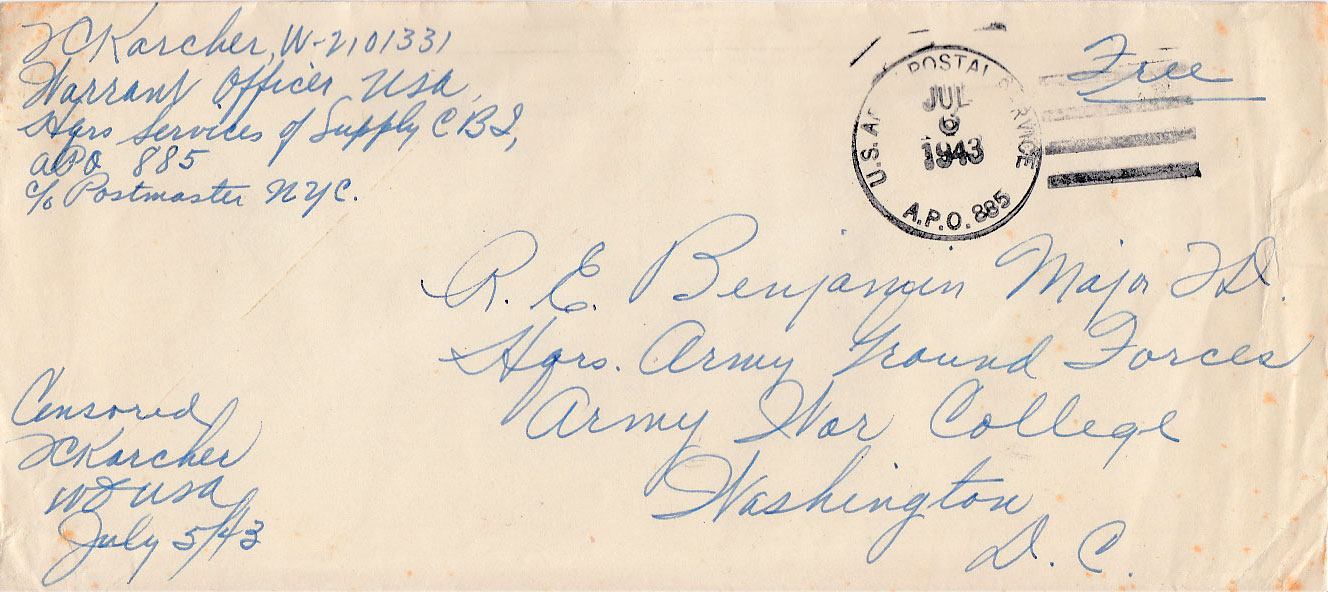 FCKarcher, W-2101331
Warrant Officer, USA,
Hqrs Services of Supply CBI,
APO 885
c/o Postmaster NYC.
U.S. AR POSTAL SERVICE
JUL
6
1943
A.P.O. 885
Free
R. E. Benjamin Major FD.
Hqrs. Army Ground Forces
Army War College
Washington
D. C.
Censored
FCKarcher
WO USA
July 5/43